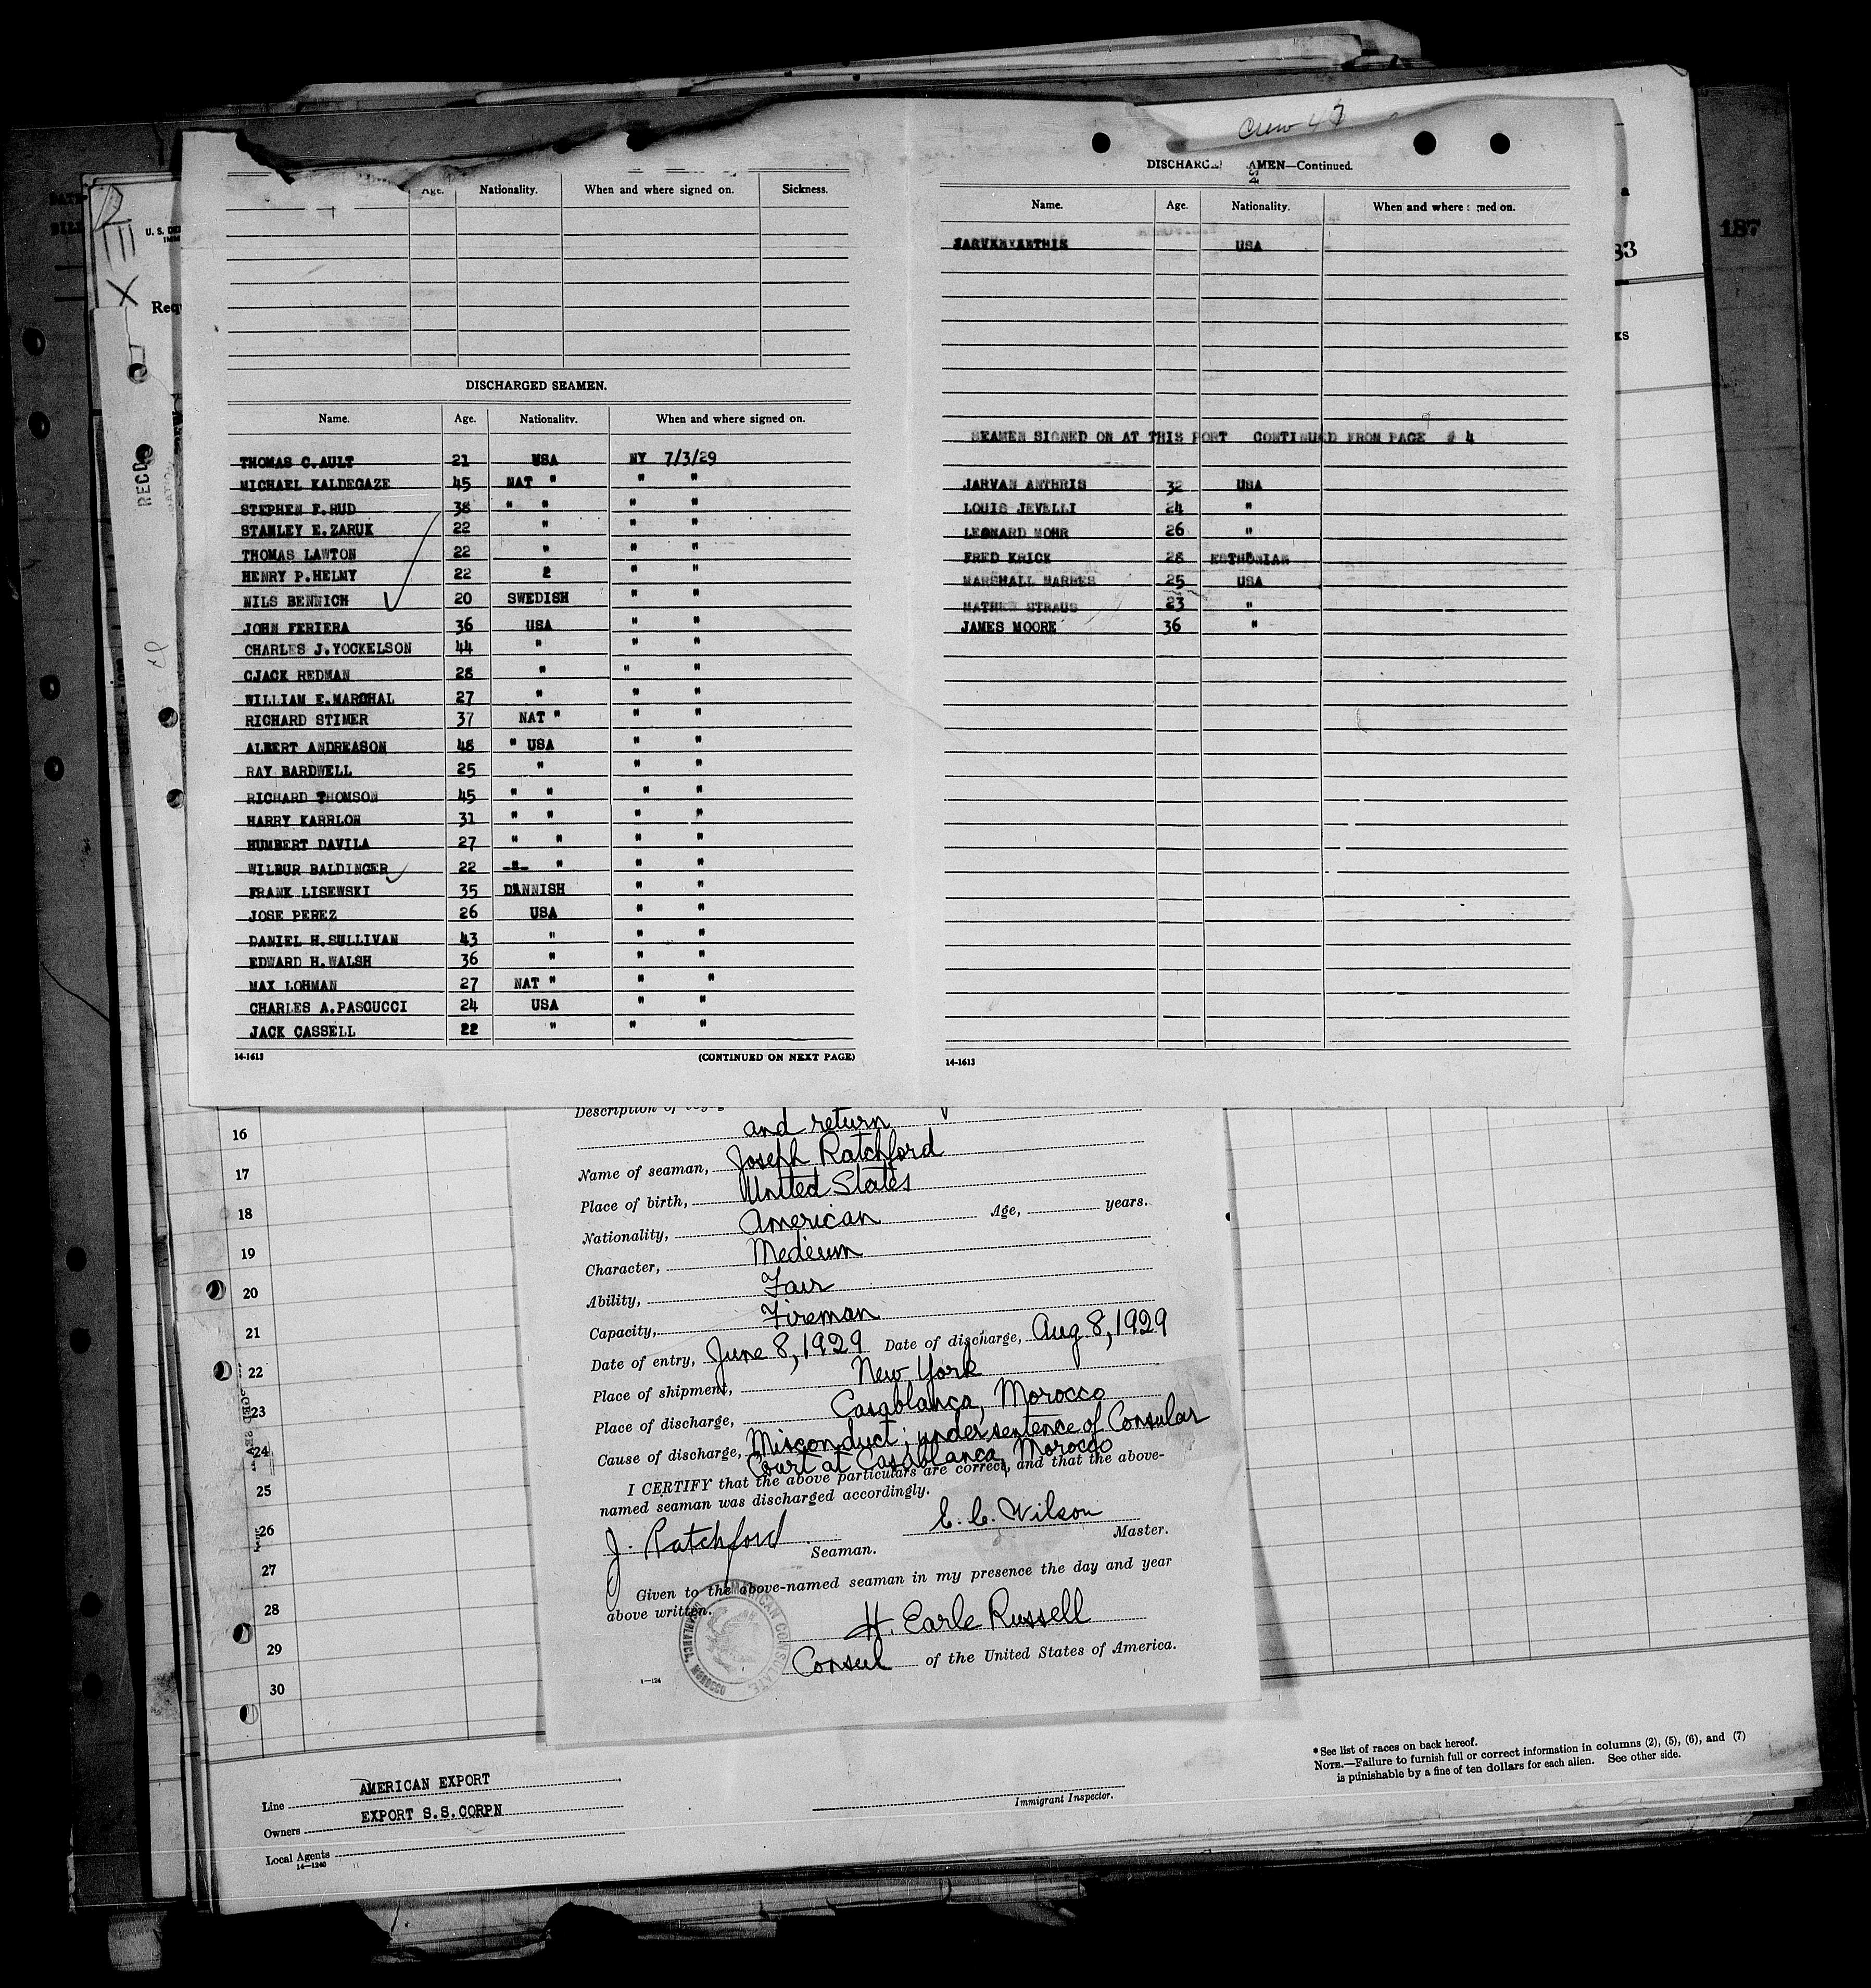 Crew 47
187
83
U. S. DE
IMM
Requ
RECD
Age. Nationality. When and where signed on. Sickness.
DISCHARGED SEAMEN.
Name. Age. Nationality. When and where signed on.
THOMAS C.AULT 21 USA NY 7/3/29
MICHAEL KALDEGAZE 45 NAT " " "
STEPHEN F.RUD 38 " " " "
STANLEY E.ZARUK 22 " " "
THOMAS LAWTON 22 " " "
HENRY P.HELMY 22 2 " "
NILS BENNICH 20 SWEDISH " "
JOHN FERIERA 36 USA " "
CHARLES J.YOCKELSON 44 " " "
CJACK REDMAN 28 " " "
WILLIAM E.MARCHAL 27 " " "
RICHARD STIMER 37 NAT " " "
ALBERT ANDREASON 48 " USA " "
RAY BARDWELL 25 " " "
RICHARD THOMSON 45 " " " "
HARRY KARRLON 31 " " " "
HUMBERT DAVILA 27 " " " "
WILBUR BALDINGER 22 -"- " " "
FRANK LISEWSKI 35 DANNISH " "
JOSE PEREZ 26 USA " "
DANIEL H.SULLIVAN 43 " " "
EDWARD H.WALSH 36 " " "
MAX LOHMAN 27 NAT " " "
CHARLES A.PASCUCCI 24 USA " "
JACK CASSELL 22 " " "
14-1613 (CONTINUED ON NEXT PAGE)
DISCHARG AMEN—Continued.
Name. Age. Nationality. When and where ned on.
USA
SEAMEN SIGNED ON AT THIS PORT CONTINUED FROM PAGE # 4
JARVAN ANTHRIS 32 USA
LOUIS JEVELLI 24 "
LEONARD MOHR 26 "
FRED KRICK 28 ESTHONIAN
MARSHALL MARBES 25 USA
MATHEW STRAUS 23 "
JAMES MOORE 36 "
14-1613
16
17
18
19
20
21
22
23
24
25
26
27
28
29
30
Description of
and return
Name of seaman, Joseph Ratchford
Place of birth, United States
Nationality, American Age, years.
Character, Medium
Ability, Fair
Capacity, Fireman
Date of entry, June 8, 1929 Date of discharge, Aug 8, 1929
Place of shipment, New York
Place of discharge, Casablanca, Morocco
Cause of discharge, Misconduct; under sentence of Consular
Court at Casablanca, Morocco
I CERTIFY that the above particulars are correct, and that the above-
named seaman was discharged accordingly.
J. Ratchford E. C. Wilson
Seaman. Master.
Given to the above-named seaman in my presence the day and year
above written.
H. Earle Russell
Consul of the United States of America.
AMERICAN CONSULATE
CASABLANCA, MOROCCO
1—124
Line AMERICAN EXPORT
Owners EXPORT S.S.CORPN
Local Agents
14—1240
Immigrant Inspector.
* See list of races on back hereof.
NOTE.—Failure to furnish full or correct information in columns (2), (5), (6), and (7)
is punishable by a fine of ten dollars for each alien. See other side.